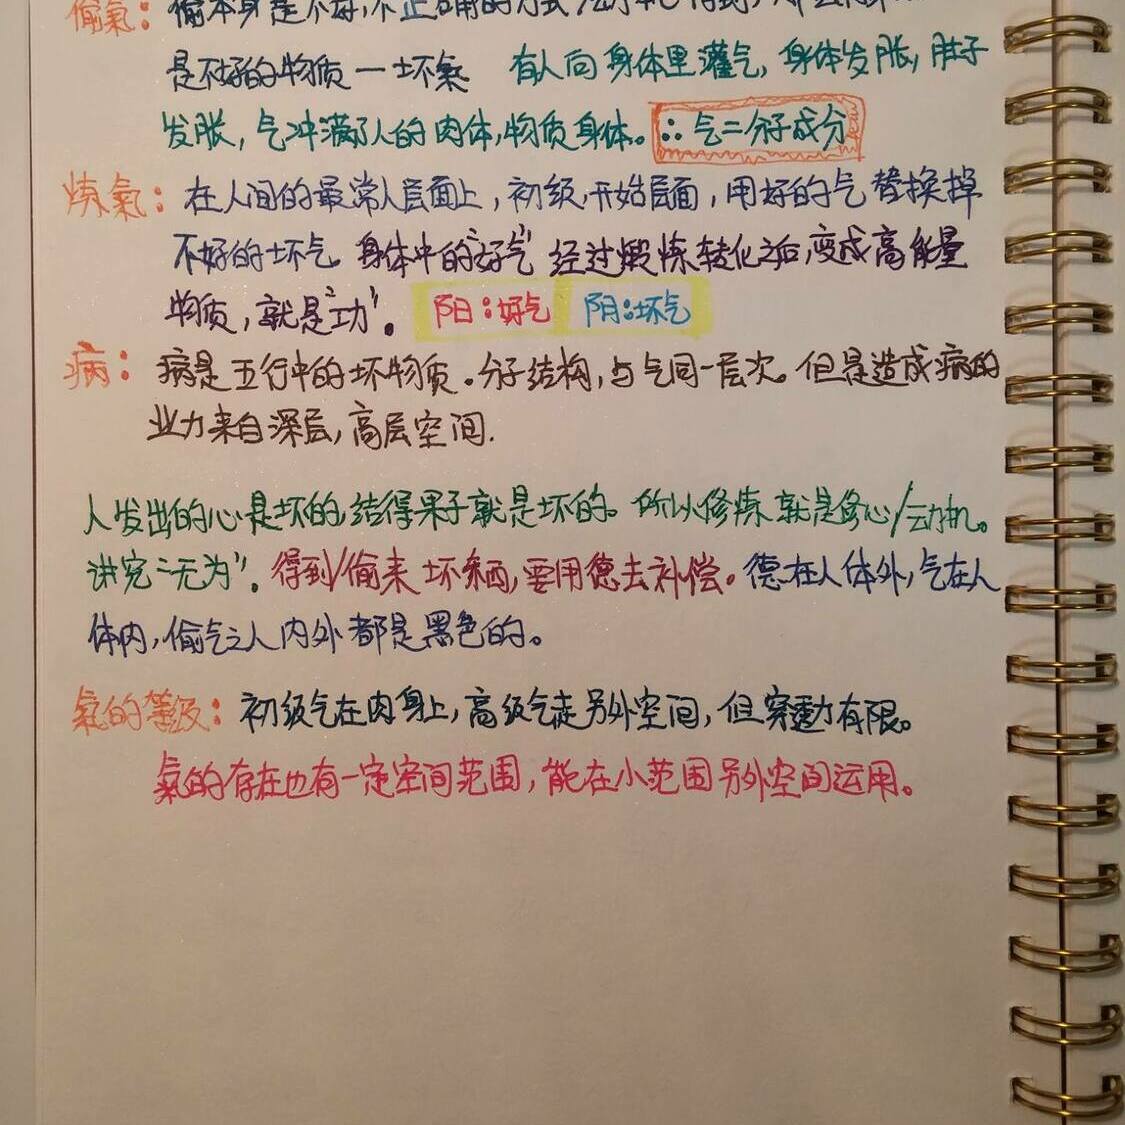 偷氣：偷本身是不好，不正确的方式
是不好的物质—坏氣 有人向身体里灌气，身体发胀，肚子
发胀，气冲满了人的肉体，物质身体。∴气=分子成分
炼氣：在人间的最常人层面上，初级，开始层面，用好的气替换掉
不好的坏气。身体中的"好气"经过煅炼转化之后，变成高能量
物质，就是"功"。 阳：好气 阴：坏气
病：病是五行中的坏物质。分子结构，与气同一层次。但是造成病的
业力来自深层，高层空间.
人发出的心是坏的，结得果子就是坏的。所以修炼就是修心/动机。
讲究"无为"。得到/偷来坏东西，要用德去补偿。德在人体外，气在人
体内，偷气之人内外都是黑色的。
氣的等级：初级气在肉身上，高级气走另外空间，但穿透力有限。
氣的存在也有一定空间范围，能在小范围另外空间运用。